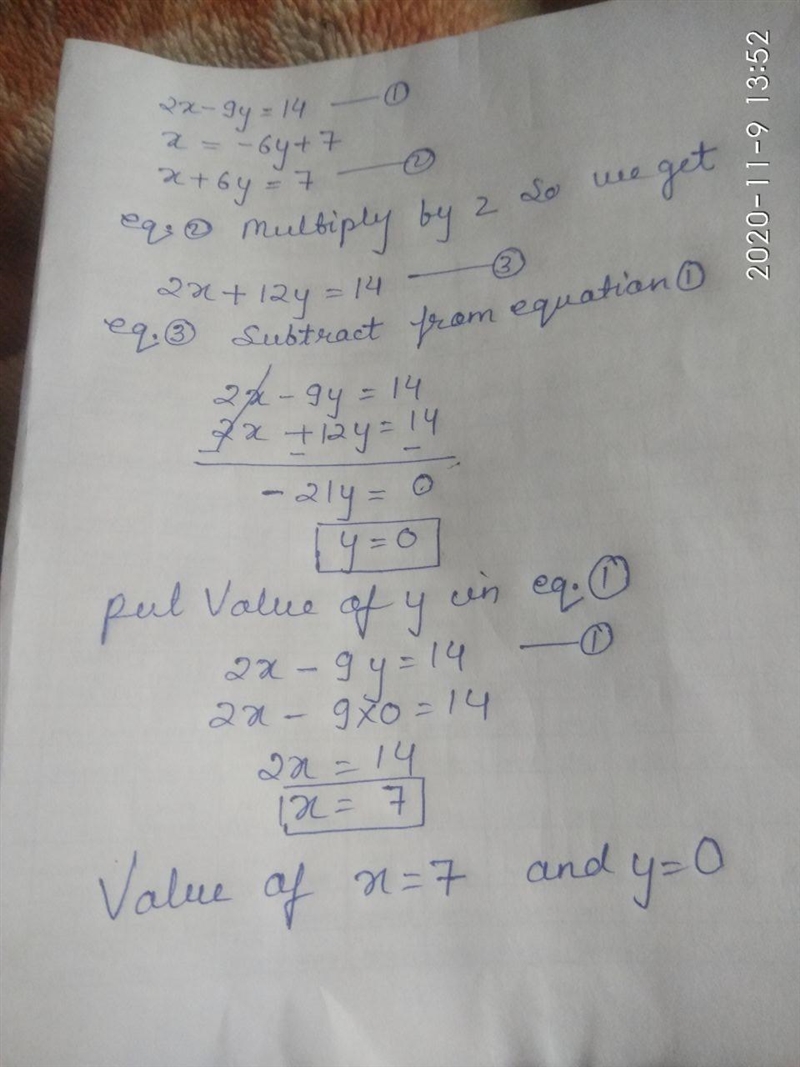 2x - 9y = 14 — ①
x = -6y + 7
x + 6y = 7 — ②
eq. ② Multiply by 2 So we get
2x + 12y = 14 — ③
eq. ③ Subtract from equation ①
2x - 9y = 14
2x + 12y = 14
- - -
-21y = 0
y = 0
put Value of y in eq. ①
2x - 9y = 14 — ①
2x - 9x0 = 14
2x = 14
x = 7
Value of x = 7 and y = 0
2020-11-9 13:52